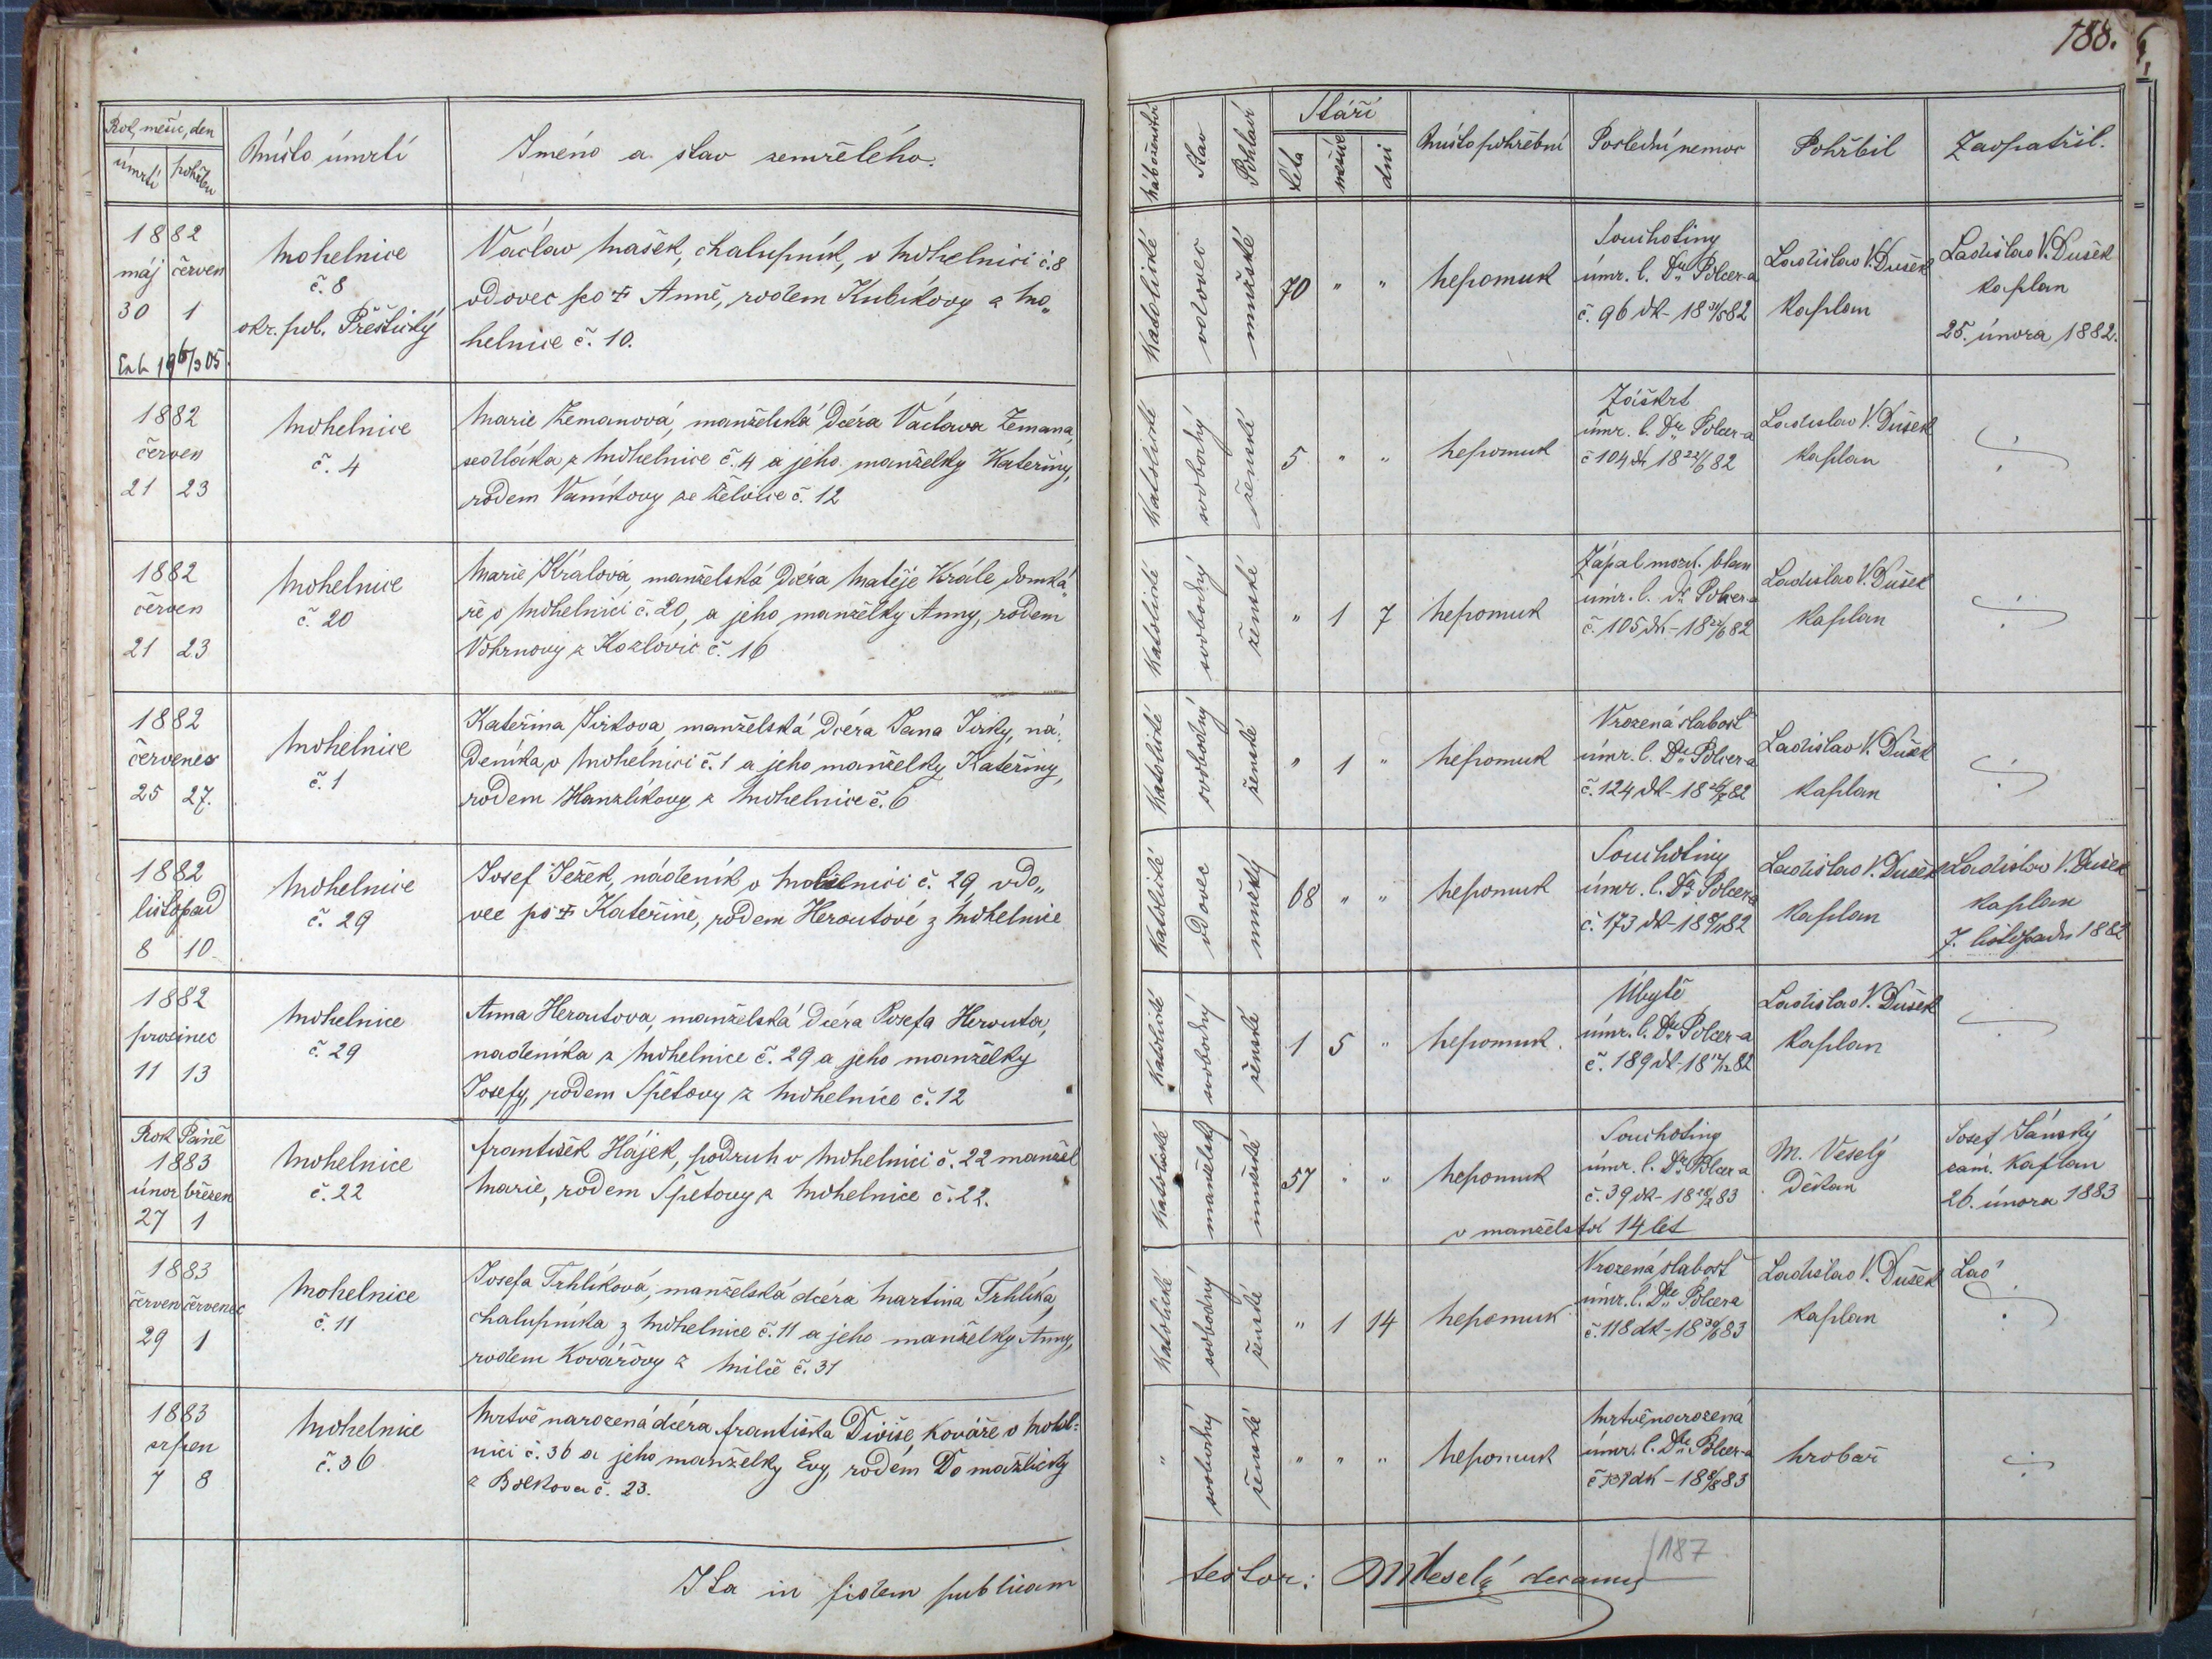 188.
Rok, měsíc, den
úmrtí pohřbu
Místo úmrtí
Jméno a stav zemřelého.
1882
máj červen
30 1
Mohelnice
č. 8
okr. pol. Přeštický
Václav Mašek, chalupník, v Mohelnici č. 8
vdovec po ✝ Anně, rodem Kubíkovy z Mo„
helnice č. 10.
1882
červen
21 23
Mohelnice
č. 4
Marie Zemanová, manželská dcéra Václava Zemana,
sedláka z Mohelnice č. 4 a jeho manželky Kateřiny,
rodem Vamítovy ze Želvice č. 12
1882
červen
21 23
Mohelnice
č. 20
Marie Králová, manželská dcéra Matěje Krále domká„
ře v Mohelnici č. 20, a jeho manželky Anny, rodem
Vohrnovy z Kozlovic č. 16
1882
červenec
25 27.
Mohelnice
č. 1
Kateřina Jirkova, manželská dcéra Jana Jirky, ná„
deníka, v Mohelnici č. 1 a jeho manželky Kateřiny,
rodem Hanzlíkovy z Mohelnice č. 6
1882
listopad
8 10
Mohelnice
č. 29
Josef Ježek, nádeník v Mohelnici č. 29, vdo„
vec po ✝ Kateřině, rodem Heroutové z Mohelnice
1882
prosinec
11 13
Mohelnice
č. 29
Anna Heroutova, manželská dcéra Josefa Herouta,
nadeníka z Mohelnice č. 29 a jeho manželky
Josefy, rodem Špětovy z Mohelnice č. 12
Rok Páně
1883
únor březen
27 1
Mohelnice
č. 22
František Hájek, podruh v Mohelnici č. 22 manžel
Marie, rodem Špětovy z Mohelnice č. 22.
1883
červen červenec
29 1
Mohelnice
č. 11
Josefa Trhlíková, manželská dcéra Martina Trhlíka,
chalupníka z Mohelnice č. 11 a jeho manželky Anny,
rodem Kovářovy z Milče č. 31
1883
srpen
7 8
Mohelnice
č. 36
Mrtvě narozená dcéra Františka Diviše, kováře v Mohel=
nici č. 36 a jeho manželky Evy, rodem Domažlický
z Bolkova č. 23.
Ita in fidem publicam
Náboženství
Stav
Pohlaví
Stáří
Léta
měsíce
dni
Místo pohřební
Poslední nemoc
Pohřbil
Zaopatřil.
Katolické
vdovec
mužské
70 " "
Nepomuk
Souchotiny
úmr. l. Dra Polcer-a
č. 96 dt- 18 31/5 82
Ladislav V. Dušek
kaplan
Ladislav V. Dušek
kaplan
25. února 1882.
Katolické
svobodný
ženské
5 " "
Nepomuk
Záškrt
úmr. l. Dra Polcer-a
č 104 dt 18 22/6 82
Ladislav V. Dušek
kaplan
Katolické
svobodný
ženské
" 1 7
Nepomuk
Zápal mozk. blan
úmr. l. Dr Polcer-a
č. 105 dt - 18 22/6 82
Ladislav V. Dušek
kaplan
Katolické
svobodný
ženské
" 1 "
Nepomuk
Vrozená slabost
úmr. l. Dra Polcer-a
č. 124 dt - 18 26/7 82
Ladislav V. Dušek
kaplan
Katolické
vdovec
mužský
68 " "
Nepomuk
Souchotiny
úmr. l. Dra Polcer-a
č. 173 dt - 18 8/11 82
Ladislav V. Dušek
kaplan
Ladislav V. Dušek
kaplan
7. listopadu 1882
Katolické
svobodný
ženské
1 5 "
Nepomuk.
Úbytě
úmr. l. Dra Polcer-a
č. 189 dt - 18 12/12 82
Ladislav V. Dušek
kaplan
Katolické
manželský
mužské
57 " "
Nepomuk
Souchotiny
úmr. l. Dra Polcer a
č. 39 dt - 18 28/2 83
v manželství 14 let
M. Veselý
Děkan
Josef Sánský
kaplan
26. února 1883
Katolické
svobodný
ženské
" 1 14
Nepomuk
Vrozená slabost
úmr. l. Dra Polcera
č. 118 dt - 18 30/6 83
Ladislav V. Dušek
kaplan
Lad
"
svobodný
ženské
" " "
Nepomuk
Mrtvě narozená
úmr. l. Dra Polcer-a
dt - 18 8/8 83
hrobař
testor: MVeselý decanus
187